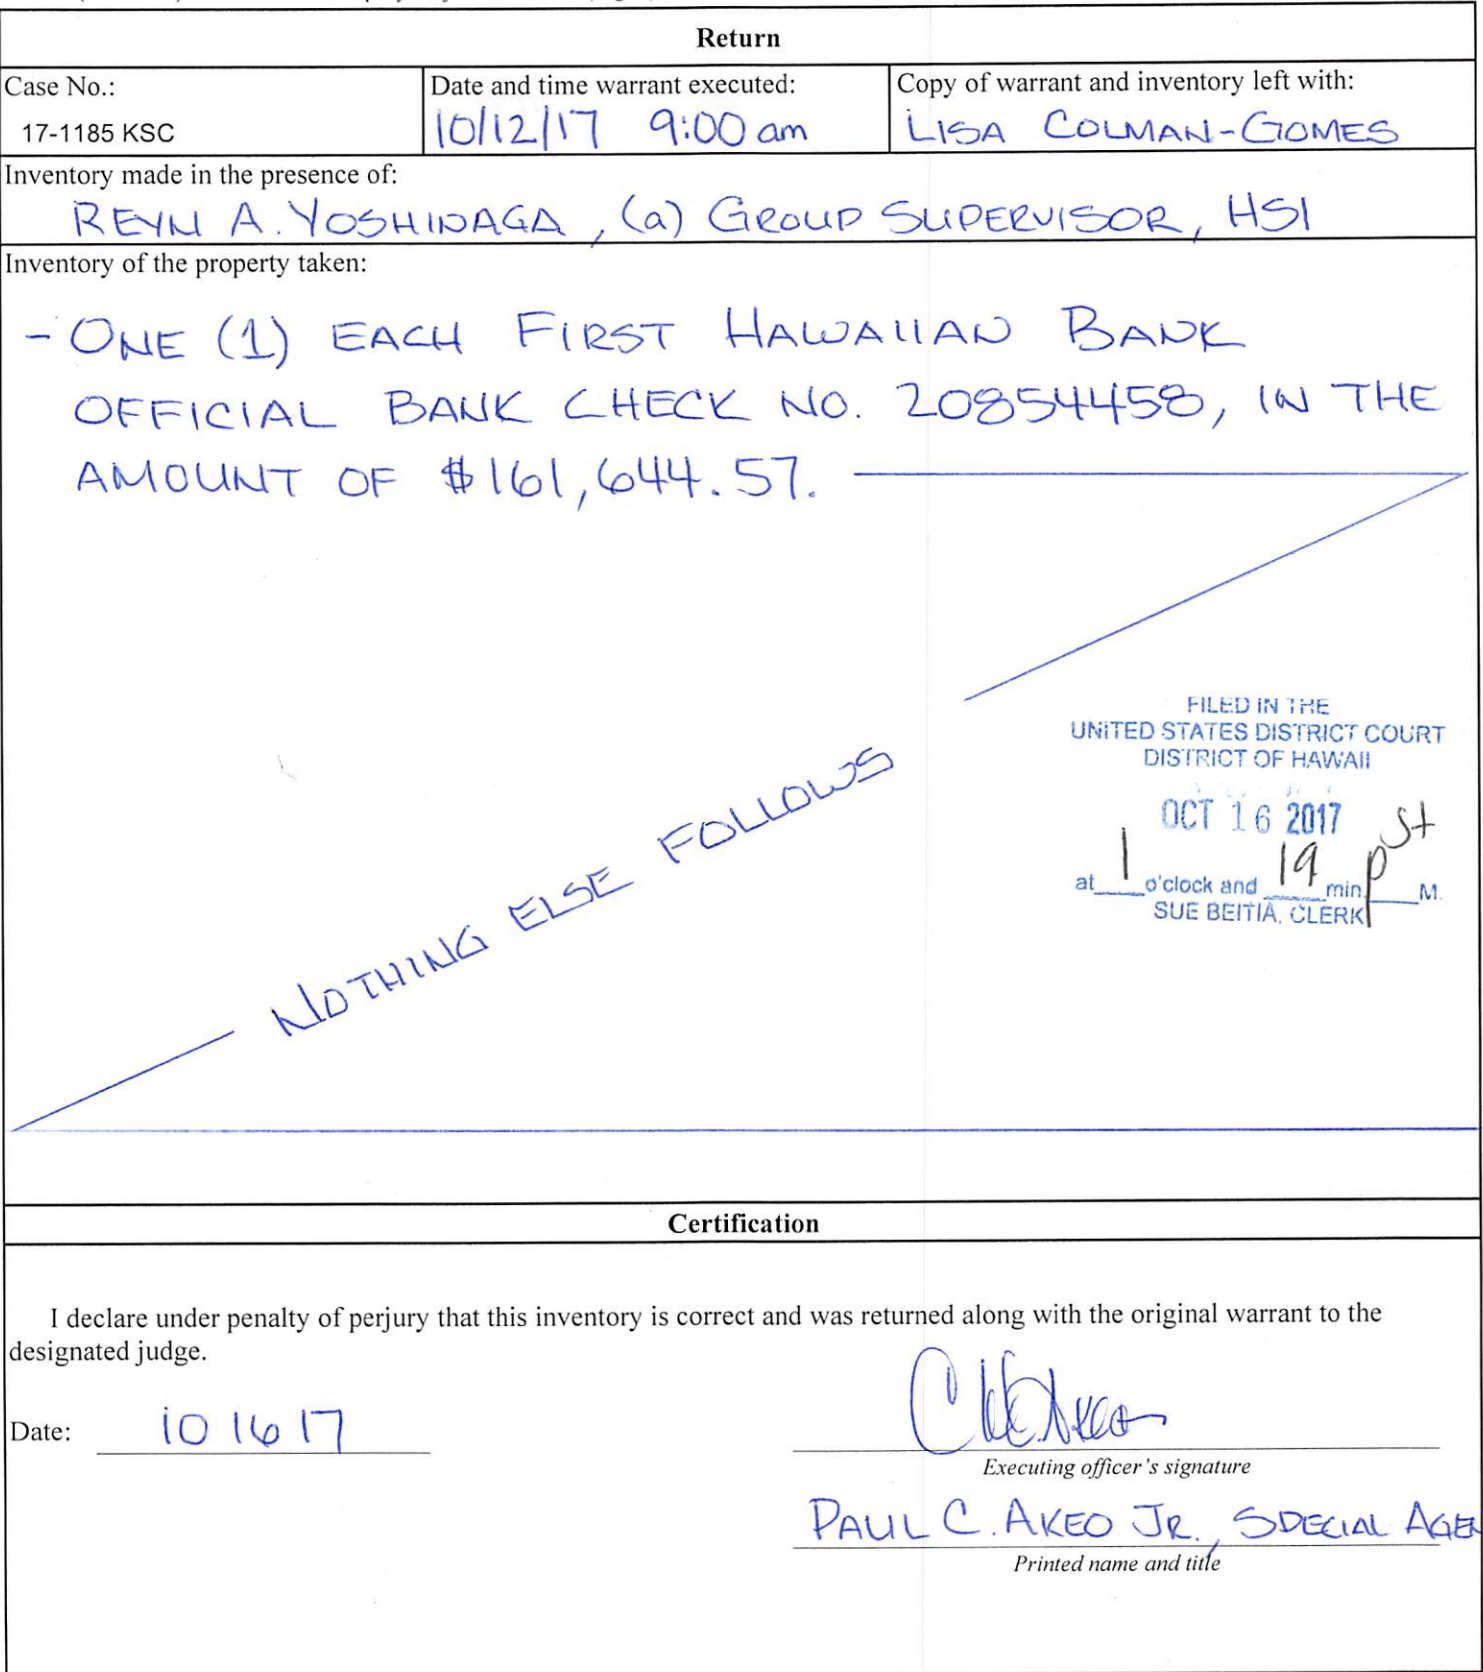 Return
Case No.:
17-1185 KSC
Date and time warrant executed:
10/12/17 9:00 am
Copy of warrant and inventory left with:
LISA COLMAN-GOMES
Inventory made in the presence of:
REYN A. YOSHINAGA, (a) GROUP SUPERVISOR, HSI
Inventory of the property taken:
- ONE (1) EACH FIRST HAWAIIAN BANK
OFFICIAL BANK CHECK NO. 20854458, IN THE
AMOUNT OF $161,644.57.
FILED IN THE
UNITED STATES DISTRICT COURT
DISTRICT OF HAWAII
OCT 16 2017
at 1 o'clock and 19 min p M.
SUE BEITIA, CLERK
NOTHING ELSE FOLLOWS
Certification
I declare under penalty of perjury that this inventory is correct and was returned along with the original warrant to the
designated judge.
Date: 10 16 17
Executing officer's signature
PAUL C. AKEO JR., SPECIAL AGE
Printed name and title